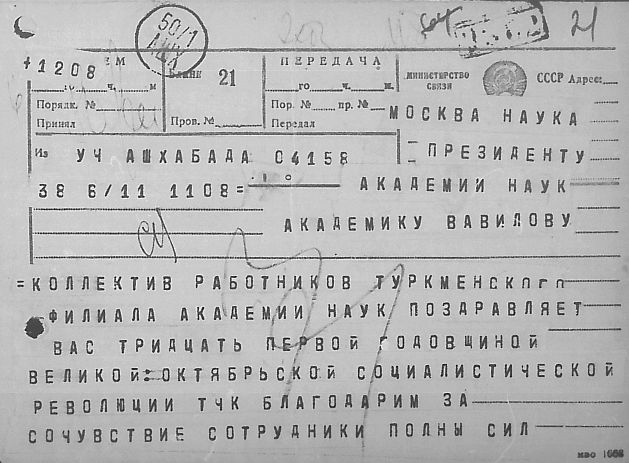 50/1
АШХ
21
ЕМ
ПЕРЕДАЧА
1208
Бланк 21
МИНИСТЕРСТВО СВЯЗИ
СССР Адрес:
го ч. м.
Порядк. №
Пор. № пр. №
МОСКВА НАУКА
Принял
Пров. №
Передал
Из УЧ АШХАБАДА 04158
ПРЕЗИДЕНТУ
38 6/11 1108=
АКАДЕМИИ НАУК
АКАДЕМИКУ ВАВИЛОВУ
=КОЛЛЕКТИВ РАБОТНИКОВ ТУРКМЕНСКОГО
ФИЛИАЛА АКАДЕМИИ НАУК ПОЗДРАВЛЯЕТ
ВАС ТРИДЦАТЬ ПЕРВОЙ ГОДОВЩИНОЙ
ВЕЛИКОЙ=ОКТЯБРЬСКОЙ СОЦИАЛИСТИЧЕСКОЙ
РЕВОЛЮЦИИ ТЧК БЛАГОДАРИМ ЗА
СОЧУВСТВИЕ СОТРУДНИКИ ПОЛНЫ СИЛ